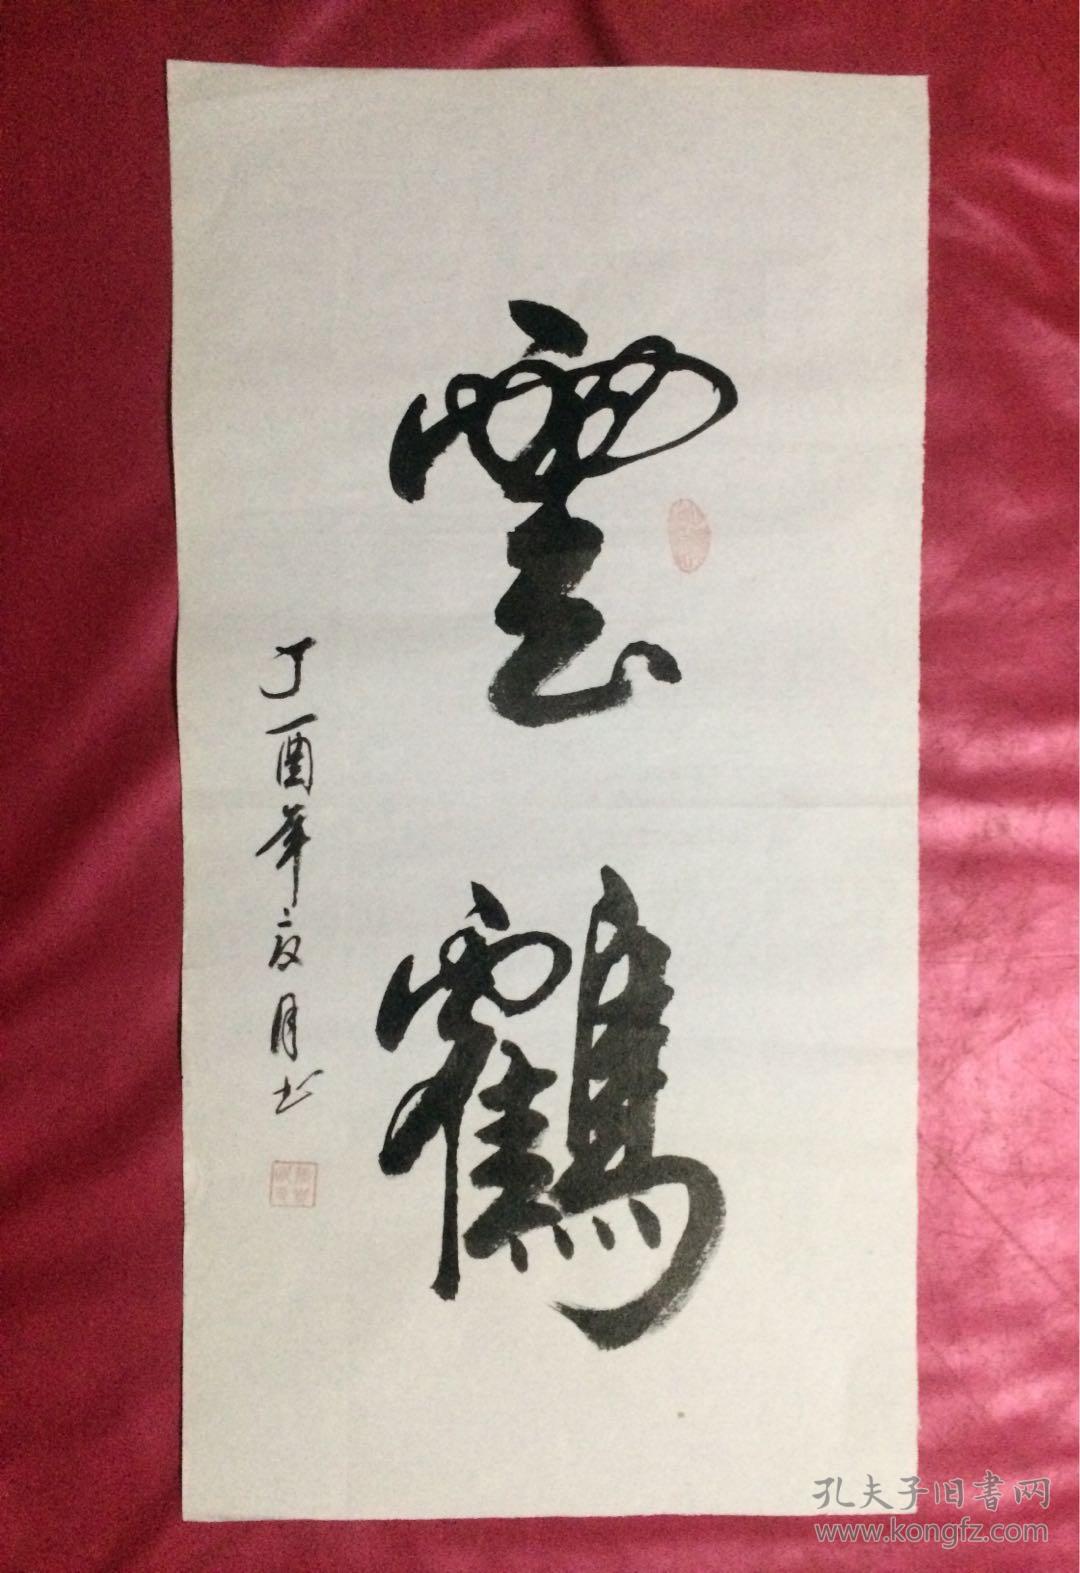 雲鶴
丁酉年夏月书
孔夫子旧书网
www.kongfz.com